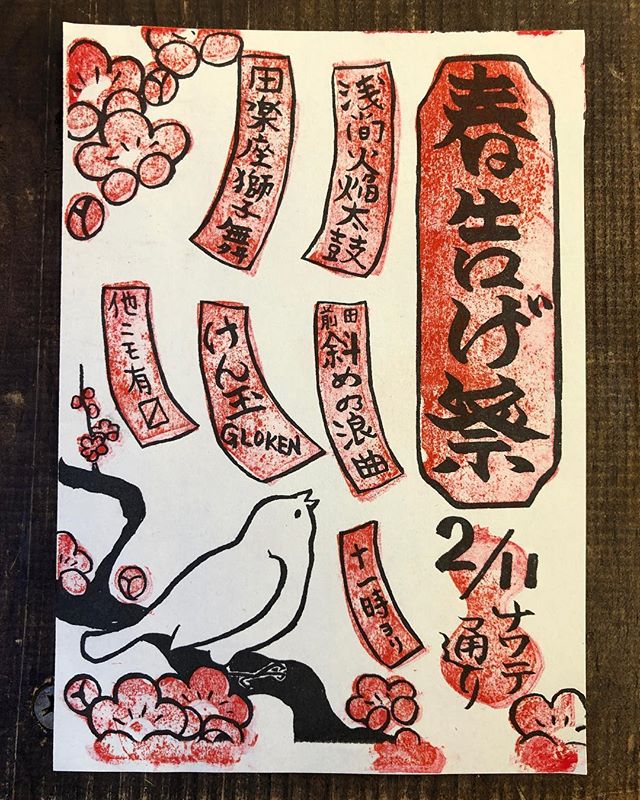 春告げ祭
2/11
ナワテ
通り
浅間火焔太鼓
田楽座獅子舞
前田
斜めの浪曲
けん玉
GLOKEN
他ニモ有〼
十一時ヨリ